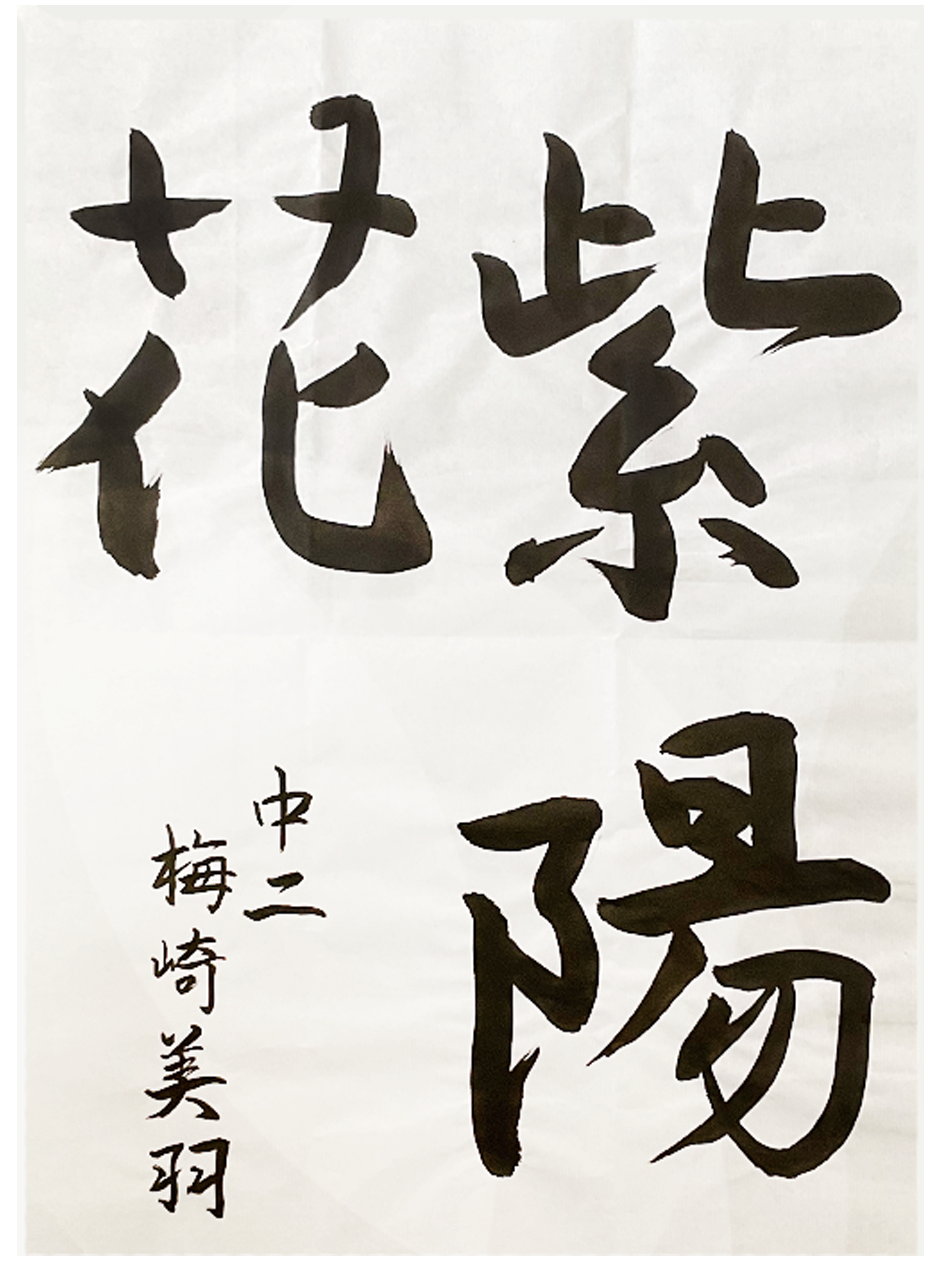 紫陽
花
中二
梅崎美羽